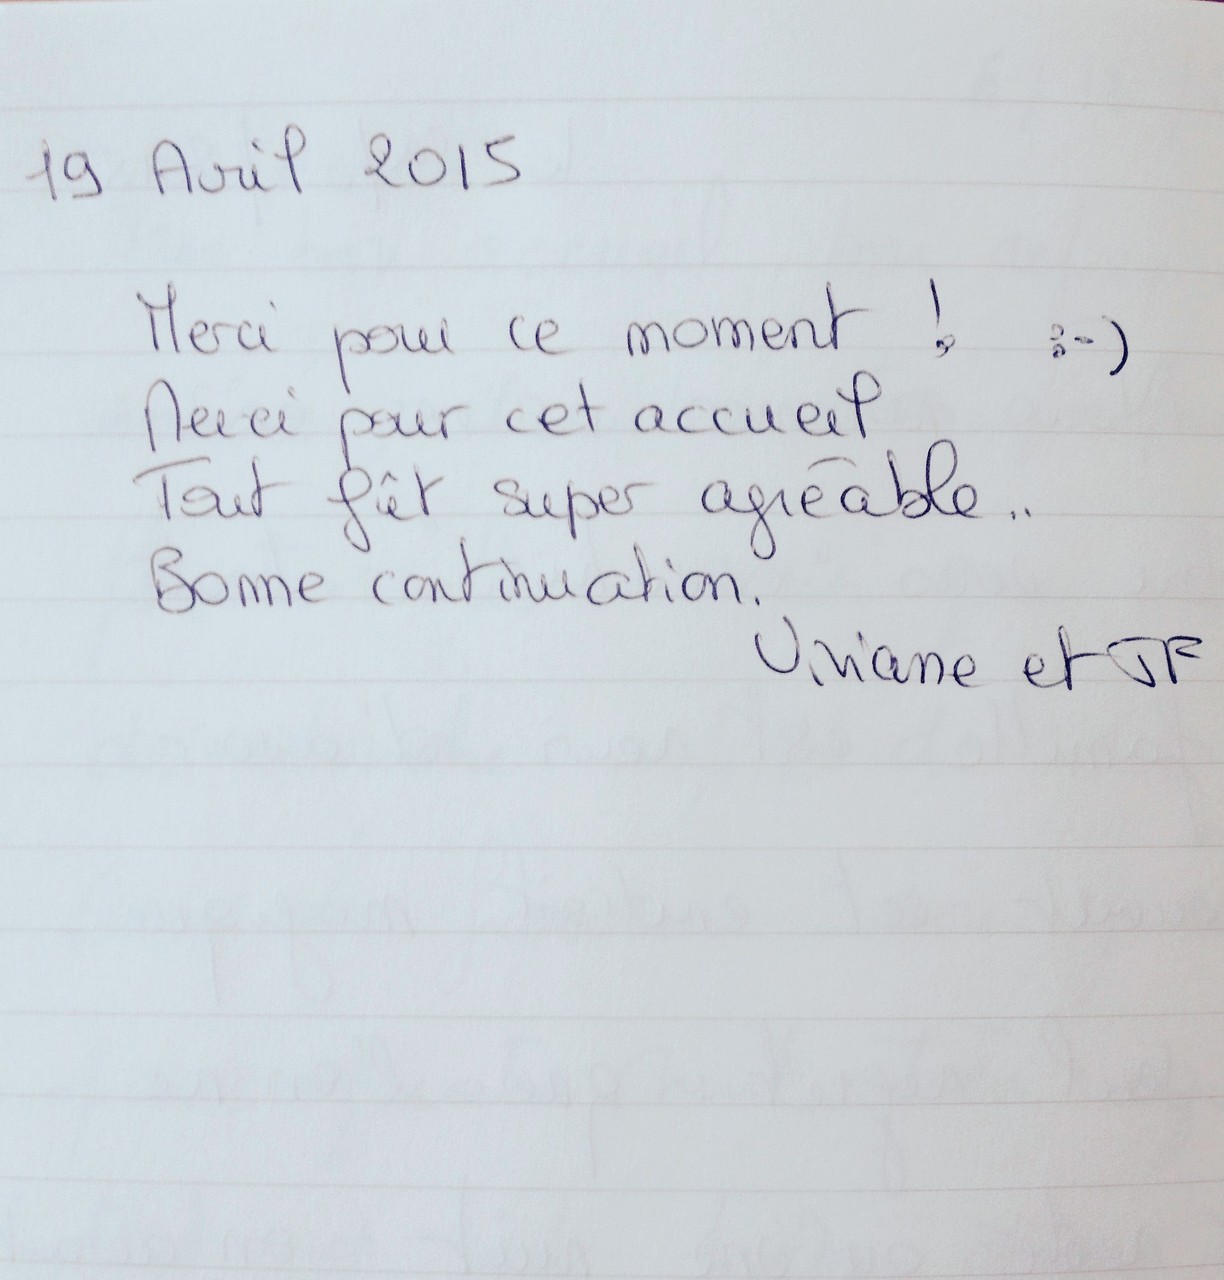 19 Avril 2015
Merci pour ce moment ! :-)
Merci pour cet accueil
Tout fût super agréable..
Bonne continuation.
Viviane et JF